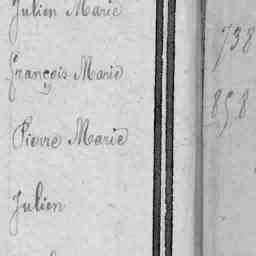 Julien Marie
738
François Marie
858
Pierre Marie
Julien